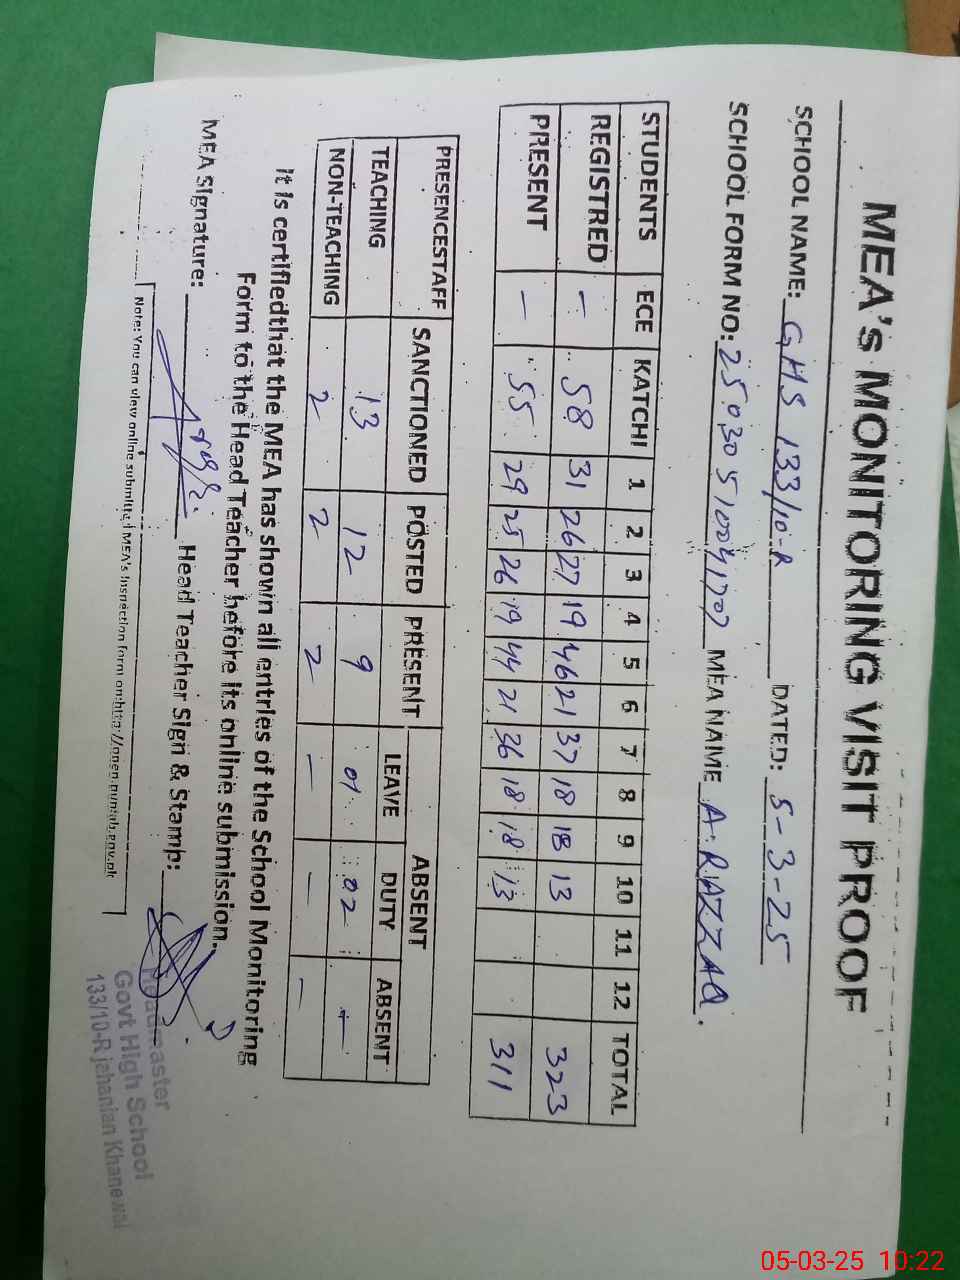 MEA's MONITORING VISIT PROOF
SCHOOL NAME: GHS 133/10-R DATED: 5-3-25
SCHOOL FORM NO: MEA NAME A. RAZZAQ.
STUDENTS ECE KATCHI 1 2 3 4 5 6 7 8 9 10 11 12 TOTAL
REGISTRED — 58 31 26 27 19 46 21 37 18 18 13 323
PRESENT — 55 29 25 26 19 44 21 36 18 18 13 311
PRESENCESTAFF SANCTIONED POSTED PRESENT ABSENT
LEAVE DUTY ABSENT
TEACHING 13 12 9 01 02 —
NON-TEACHING 2 2 2 — — —
It is certifiedthat the MEA has shown all entries of the School Monitoring
Form to the Head Teacher before its online submission.
MEA Signature: Head Teacher Sign & Stamp:
Headmaster
Govt High School
133/10-R jahanian Khanewal
Note: You can view online submitted MEA's Inspection form on:http://open.punjab.gov.pk
05-03-25 10:22